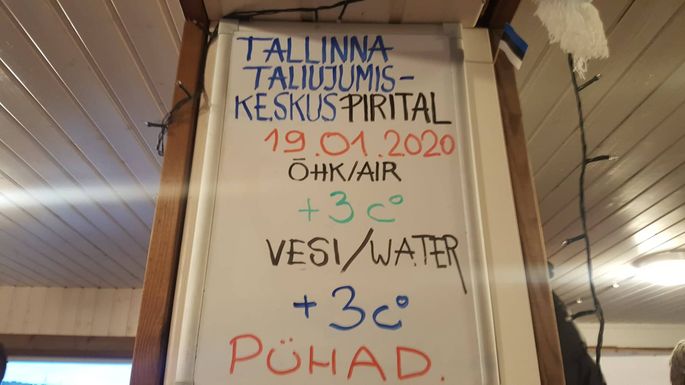 TALLINNA
TALIUJUMIS-
KESKUS PIRITAL
19.01.2020
ÕHK/AIR
+3 C°
VESI/WATER
+3C°
PÜHAD.